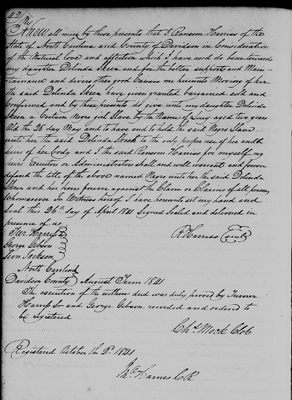 Know all men by these presents that I Ransom Harris of the
State of North Carolina and County of Davidson in Consideration
of the Natural love and affection which I have and do bear toward
my daughter Delinda Skeen and for the better support and Main-
tainance and divers other good Causes me hereunto Moving of her
the said Delinda Skeen have given granted bargained sold and
Confirmed and by these presents do give unto my daughter Delinda
Skeen a Certain Negro girl Slave by the Name of Lucy aged two years
Old the 25 day May and to have and to hold the said Negro Slave
unto her the said Delinda Skeen to the only proper use of her and the
heirs of her body and I the said Ransom Harris for myself my
heirs Executors or Administrators shall and will warrant and forever
defend the title of the above named Negro unto her the said Delinda
Skeen and her heirs forever against the Claim or Claims of all persons
Whomsoever In Witness hereof I have hereunto set my hand and
Seal this 26th day of April 1841 Signed Sealed and delivered in
presence of us
R Harris Seal
George Gibson
Jackson
North Carolina
Davidson County August Term 1841
The execution of the within deed was duly proved by Turner
Harris Sr and George Gibson. recorded and ordered to
be registered
Chs Mock Clk
Registered October the 2d 1841